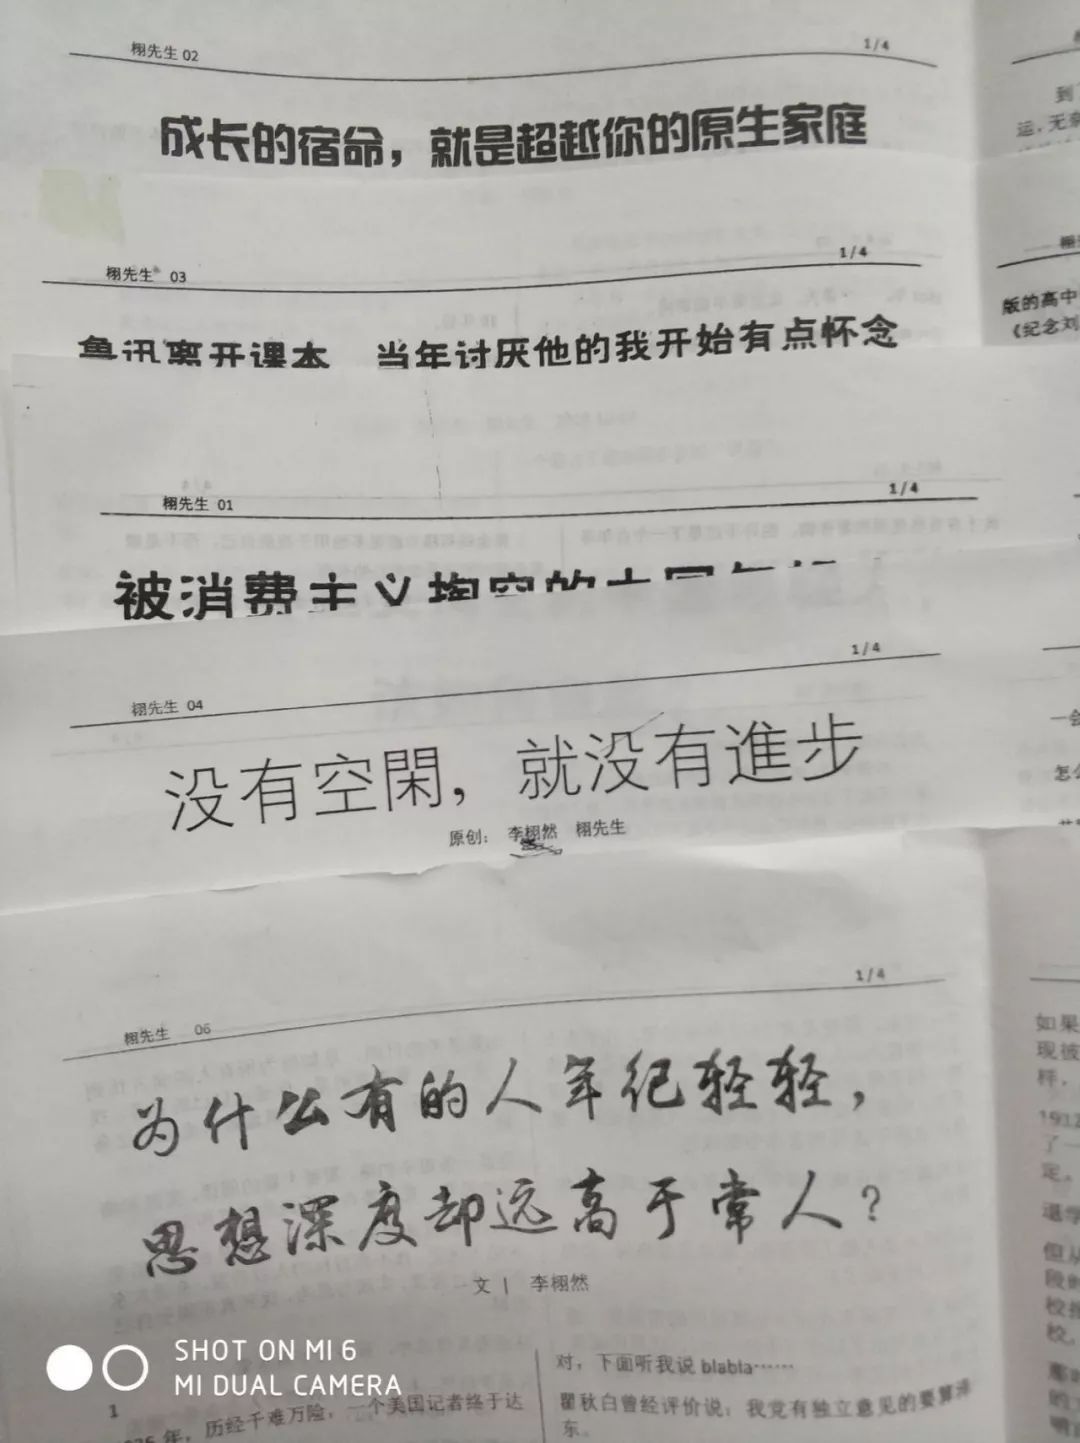 栩先生 02
1/4
成长的宿命，就是超越你的原生家庭
栩先生 03
1/4
鲁迅离开课本 当年讨厌他的我开始有点怀念
栩先生 01
1/4
被消费主义掏空的
栩先生 04
1/4
没有空閑，就没有進步
原创： 李栩然 栩先生
栩先生 06
1/4
为什么有的人年纪轻轻，
思想深度却远高于常人？
文 | 李栩然
1
年，历经千难万险，一个美国记者终于达
对，下面听我说 blabla……
瞿秋白曾经评价说，我党有独立意见的要算泽
东。
到
运，无奈
版的高中
《纪念刘
一会
怎么
如果
现被
样，
1912
了一
定。
退学
但从
段时
校
校，
的
SHOT ON MI 6
MI DUAL CAMERA